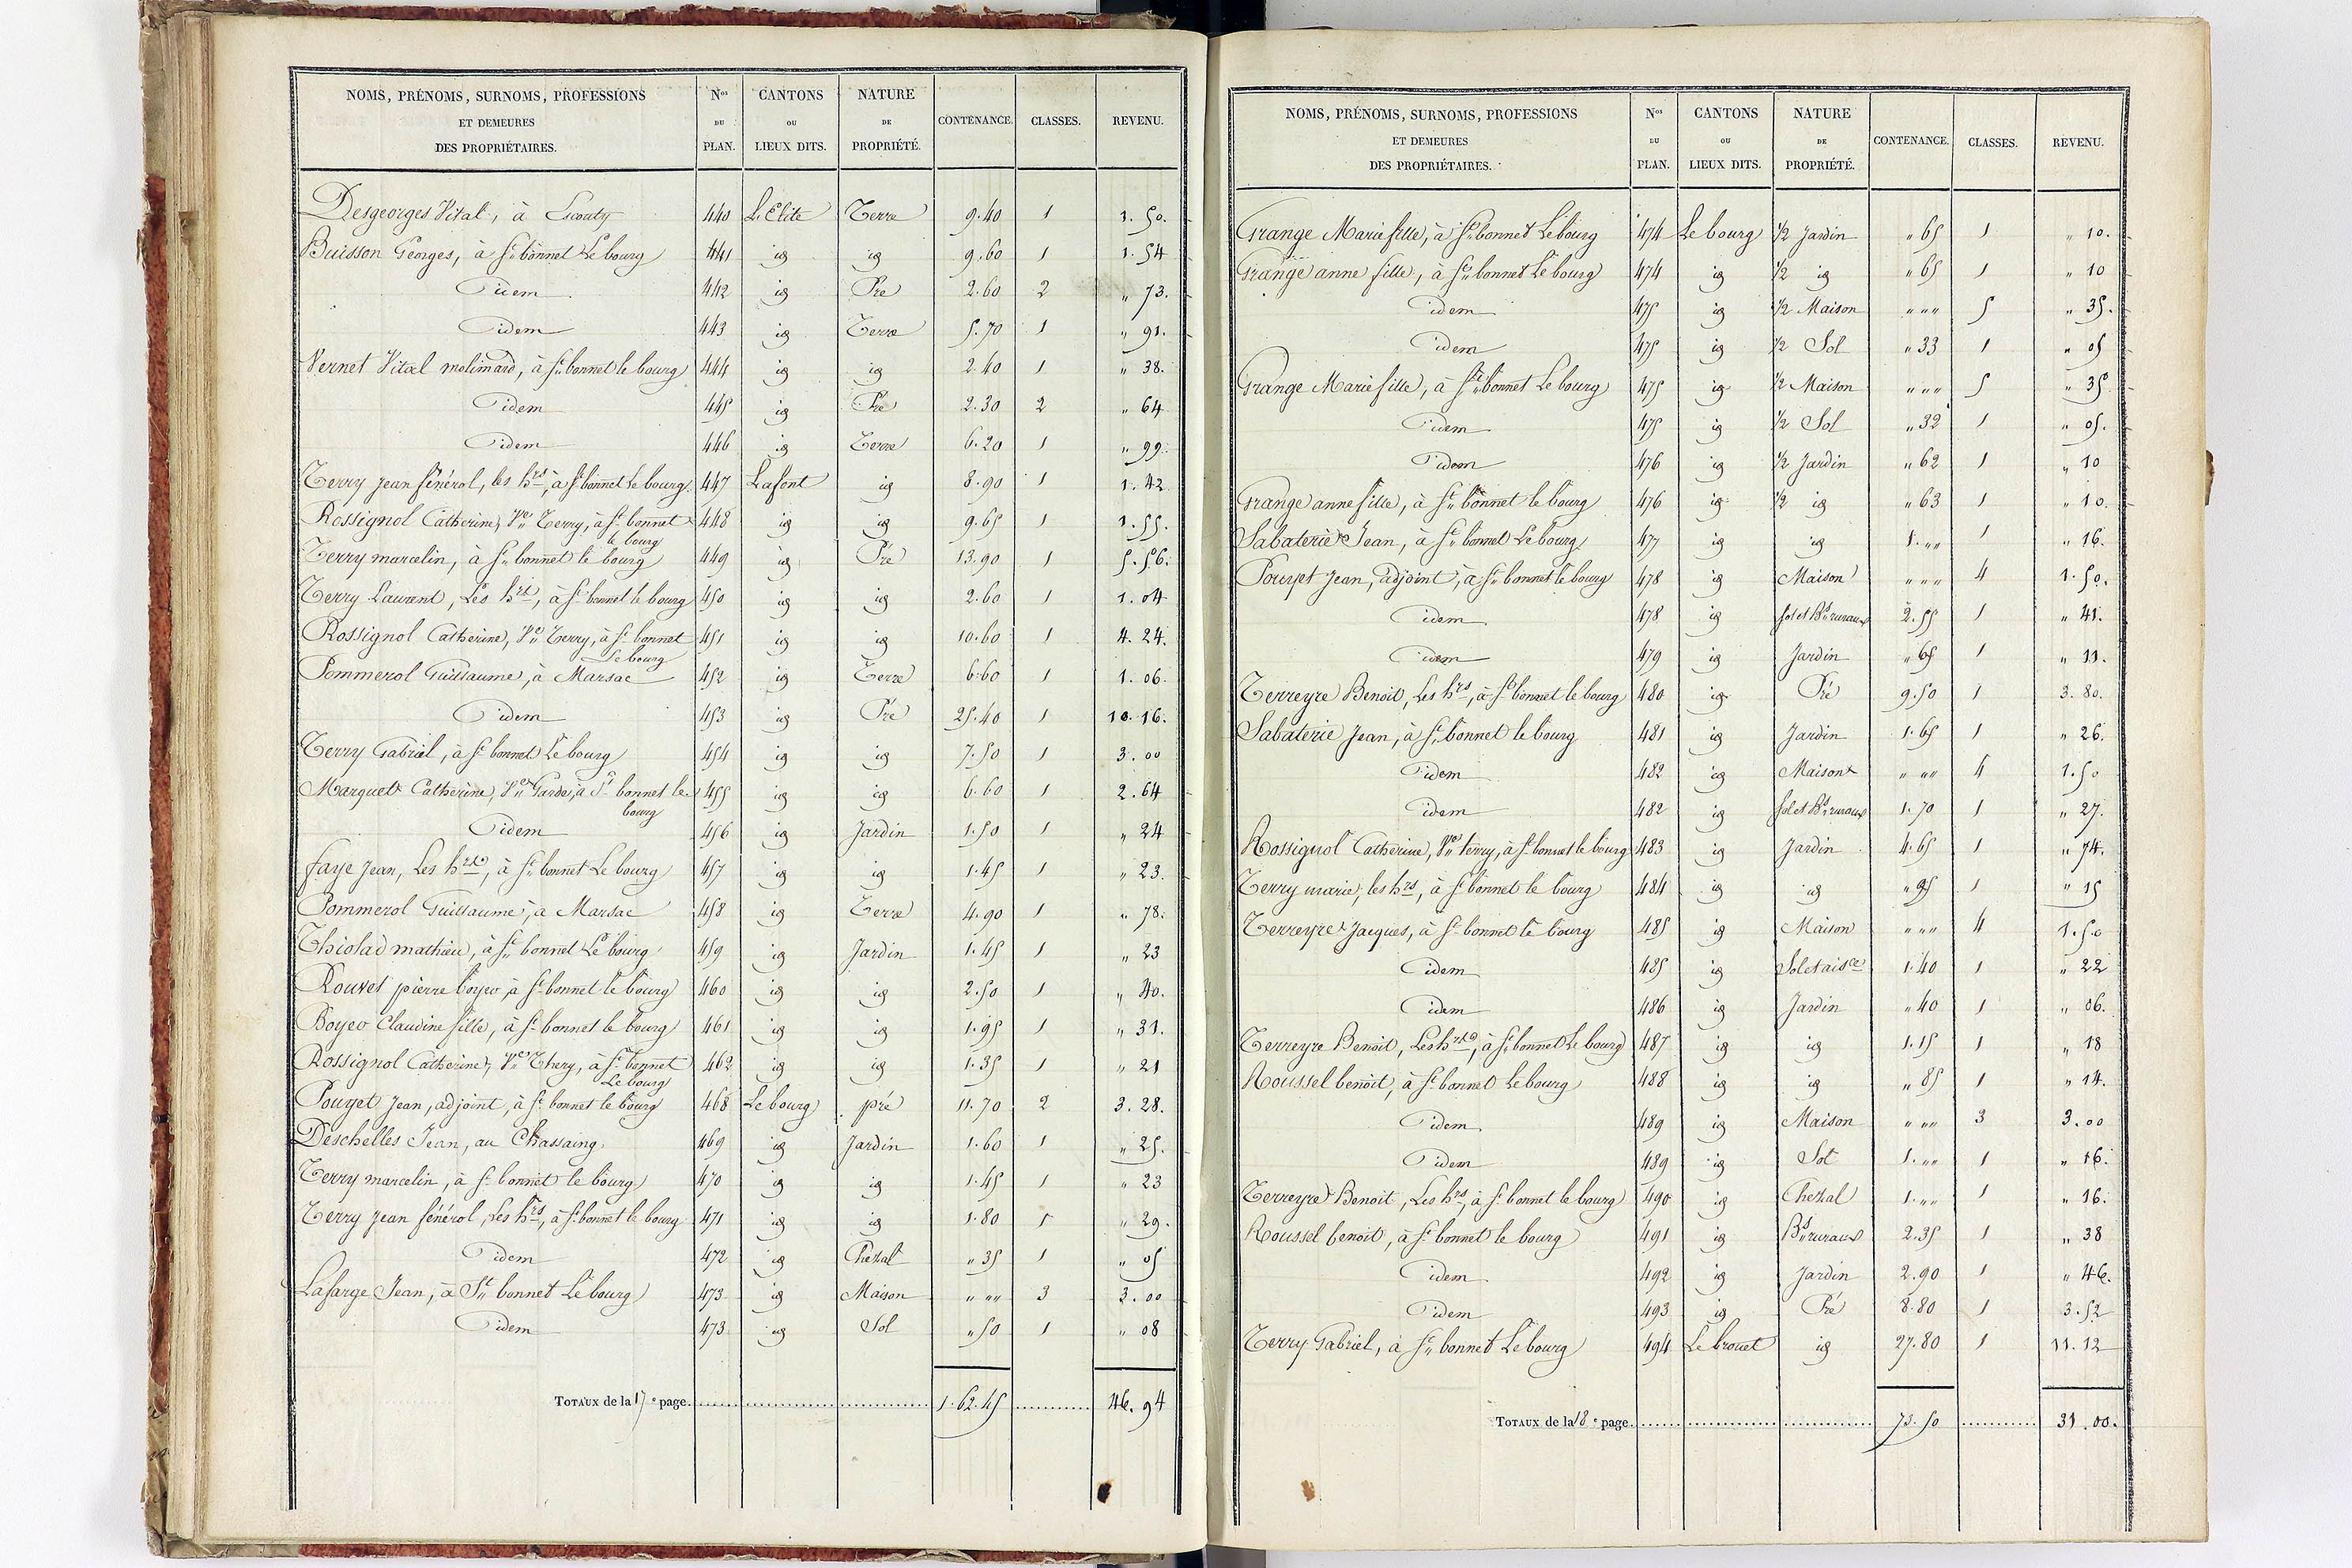 NOMS, PRÉNOMS, SURNOMS, PROFESSIONS ET DEMEURES DES PROPRIÉTAIRES. Nos DU PLAN. CANTONS OU LIEUX DITS. NATURE DE PROPRIÉTÉ. CONTENANCE. CLASSES. REVENU.
Desgeorges Vital, à Escouty 440 L'Elite Terre 9.40 1 1.50.
Buisson Georges, à St bonnet Le bourg 441 id id 9.60 1 1.54
idem 442 id Pré 2.60 2 " 73.
idem 443 id Terre 5.70 1 " 91.
Vernet Vital molimard, à St bonnet le bourg 444 id id 2.40 1 " 38.
idem 445 id Pré 2.30 2 " 64
idem 446 id Terre 6.20 1 " 99.
Terry Jean fénérol, les hrs, à St bonnet le bourg. 447 Lafont id 8.90 1 1.42
Rossignol Catherine, Ve Terry, à St bonnet 448 id id 9.65 1 1.55.
le bourg
Terry marcelin, à St bonnet le bourg 449 id Pré 13.90 1 5.56.
Terry Laurent, Les hrs, à St bonnet le bourg 450 id id 2.60 1 1.04
Rossignol Catherine, Ve Terry, à St bonnet 451 id id 10.60 1 4.24.
Le bourg
Pommerol Guillaume, à Marsac 452 id Terre 6.60 1 1.06.
idem 453 id Pré 25.40 1 10.16.
Terry Gabriel, à St bonnet Le bourg 454 id id 7.50 1 3.00
Marquet Catherine, Ve Gardes, à St bonnet le 455 id id 6.60 1 2.64
bourg
idem 456 id Jardin 1.50 1 " 24
faye Jean, Les hrs, à St bonnet Le bourg 457 id id 1.45 1 " 23.
Pommerol Guillaume, à Marsac 458 id Terre 4.90 1 " 78.
Thiolad mathieu, à St bonnet Le bourg 459 id Jardin 1.45 1 " 23
Rouvet pierre boyer, à St bonnet le bourg 460 id id 2.50 1 " 40.
Boyer Claudine fille, à St bonnet le bourg 461 id id 1.95 1 " 31.
Rossignol Catherine, Ve Thery, à St bonnet 462 id id 1.35 1 " 21
Le bourg
Pouyet Jean, adjoint, à St bonnet le bourg 468 Le bourg pré 11.70 2 3.28.
Deschelles Jean, au Chassaing 469 id Jardin 1.60 1 " 25.
Terry marcelin, à St bonnet le bourg 470 id id 1.45 1 " 23
Terry Jean fénérol, Les hrs, à St bonnet le bourg 471 id id 1.80 1 " 29.
idem 472 id Chezal " 35 1 " 05
Lafarge Jean, à St bonnet Le bourg 473 id Maison " "" 3 3.00
idem 473 id Sol " 50 1 " 08
TOTAUX de la 17e page. 1.62.45 46.94
NOMS, PRÉNOMS, SURNOMS, PROFESSIONS ET DEMEURES DES PROPRIÉTAIRES. Nos DU PLAN. CANTONS OU LIEUX DITS. NATURE DE PROPRIÉTÉ. CONTENANCE. CLASSES. REVENU.
Grange Marie fille, à St bonnet Le bourg 474 Le bourg 1/2 Jardin " 65 1 " 10.
Grange anne fille, à St bonnet Le bourg 474 id 1/2 id " 65 1 " 10
idem 475 id 1/2 Maison " "" 5 " 35.
idem 475 id 1/2 Sol " 33 1 " 05
Grange Marie fille, à St bonnet Le bourg 475 id 1/2 Maison " "" 5 " 35
idem 475 id 1/2 Sol " 32 1 " 05.
idem 476 id 1/2 Jardin " 62 1 " 10
Grange anne fille, à St bonnet le bourg 476 id 1/2 id " 63 1 " 10.
Sabaterie Jean, à St bonnet Le bourg 477 id id 1. "" 1 " 16.
Pouyet Jean, adjoint, à St bonnet le bourg 478 id Maison " "" 4 1.50.
idem 478 id Sol et Bs ruraux 2.55 1 " 41.
idem 479 id Jardin " 65 1 " 11.
Terreyre Benoit, Les hrs, à St bonnet le bourg 480 id Pré 9.50 1 3.80.
Sabaterie Jean, à St bonnet le bourg 481 id Jardin 1.65 1 " 26.
idem 482 id Maison " "" 4 1.50
idem 482 id Sol et Bs ruraux 1.70 1 " 27.
Rossignol Catherine, Ve terry, à St bonnet le bourg 483 id Jardin 4.65 1 " 74.
Terry marie, les hrs, à St bonnet le bourg 484 id id " 95 1 " 15
Terreyre Jacques, à St bonnet le bourg 485 id Maison " "" 4 1.50
idem 485 id Sol et aisce 1.40 1 " 22
idem 486 id Jardin " 40 1 " 06.
Terreyre Benoit, Les hrs, à St bonnet Le bourg 487 id id 1.15 1 " 18
Roussel benoit, à St bonnet Le bourg 488 id id " 85 1 " 14.
idem 489 id Maison " "" 3 3.00
idem 489 id Sol 1. "" 1 " 16.
Terreyre Benoit, Les hrs, à St bonnet le bourg 490 id Chezal 1. "" 1 " 16.
Roussel benoit, à St bonnet le bourg 491 id Bs ruraux 2.35 1 " 38
idem 492 id Jardin 2.90 1 " 46.
idem 493 id Pré 8.80 1 3.52
Terry Gabriel, à St bonnet Le bourg 494 Le brouet id 27.80 1 11.12
TOTAUX de la 18e page. 73.50 31.00.